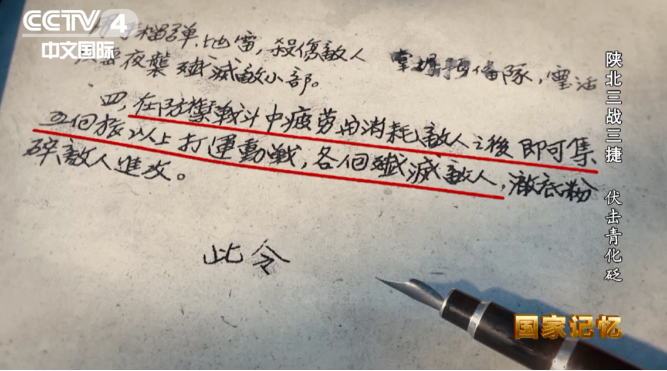 CCTV 4
中文国际
榴弹、地雷,殺傷敵人 掌握預備隊,靈活
夜襲殲滅敵小部。
四、在防禦戰斗中疲勞与消耗敵人之後即可集
五個旅以上打運動戰,各個殲滅敵人,澈底粉
碎敵人進攻。
此令
陕北三战三捷 伏击青化砭
国家记忆